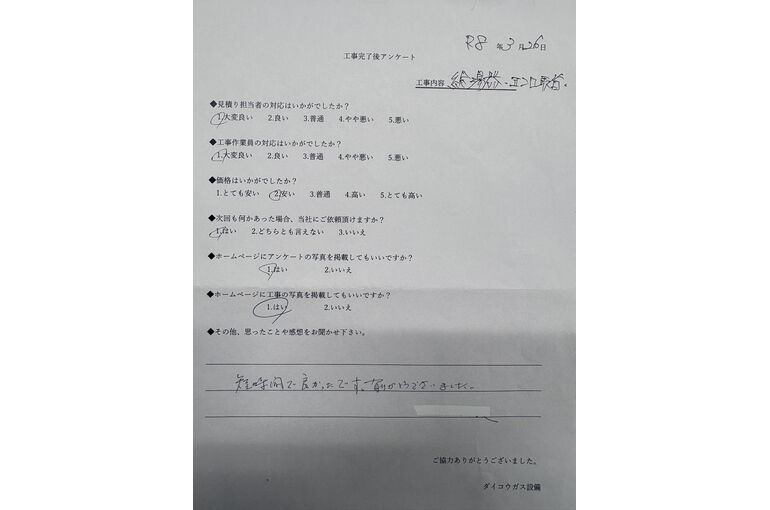 R8 年 3 月 26 日
工事完了後アンケート
工事内容 給湯器・コンロ取替。
◆見積り担当者の対応はいかがでしたか？
1.大変良い 2.良い 3.普通 4.やや悪い 5.悪い
◆工事作業員の対応はいかがでしたか？
1.大変良い 2.良い 3.普通 4.やや悪い 5.悪い
◆価格はいかがでしたか？
1.とても安い 2.安い 3.普通 4.高い 5.とても高い
◆次回も何かあった場合、当社にご依頼頂けますか？
1.はい 2.どちらとも言えない 3.いいえ
◆ホームページにアンケートの写真を掲載してもいいですか？
1.はい 2.いいえ
◆ホームページに工事の写真を掲載してもいいですか？
1.はい 2.いいえ
◆その他、思ったことや感想をお聞かせ下さい。
短時間で良かったです。ありがとうございました。
ご協力ありがとうございました。
ダイコウガス設備